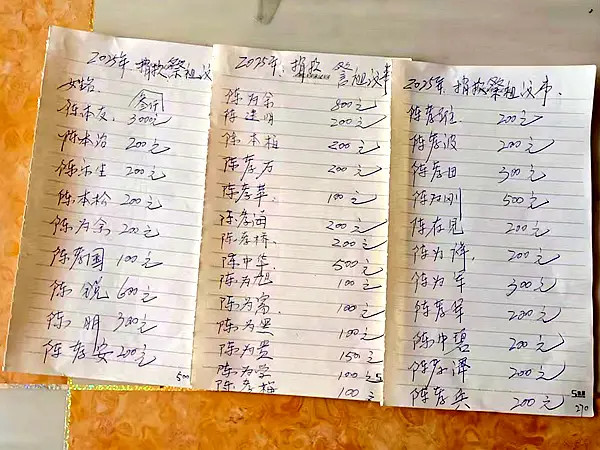 2025年捐款祭祖议
姓名
陈本友 300元
陈本治 200元
陈本生 200元
陈本松 200元
陈为余 200元
陈孝国 100元
陈锐 600元
陈明 300元
陈孝安 200元
500
2025年捐款祭祖议事
陈为余 800元
陈建明 200元
陈本植 200元
陈孝万 200元
陈孝苹 100元
陈孝海 200元
陈孝桥 200元
陈中华 500元
陈为旭 100元
陈为富 100元
陈为贵 100元
陈为贵 150元
陈为学 100元
陈孝梅 100元
2025年捐款祭祖议事
陈孝 200元
陈孝波 200元
陈孝田 300元
陈红刚 500元
陈在见 200元
陈为祥 200元
陈为军 300元
陈孝军 200元
陈中碧 200元
陈孝泽 200元
陈孝兵 200元